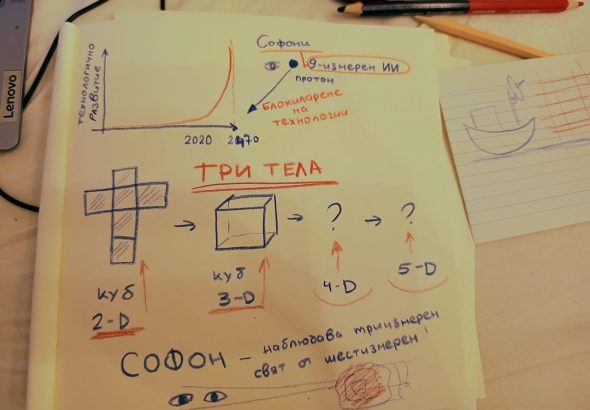 Lenovo
ТЕХНОЛОГИЧНО
РАЗВИТИЕ
2020
2070
Софони
9-измерен ИИ
протон
блокиране
на
технологии
ТРИ ТЕЛА
? ?
куб
2-D
куб
3-D
4-D
5-D
СОФОН - наблюдава триизмерен
свят от шестизмерен!